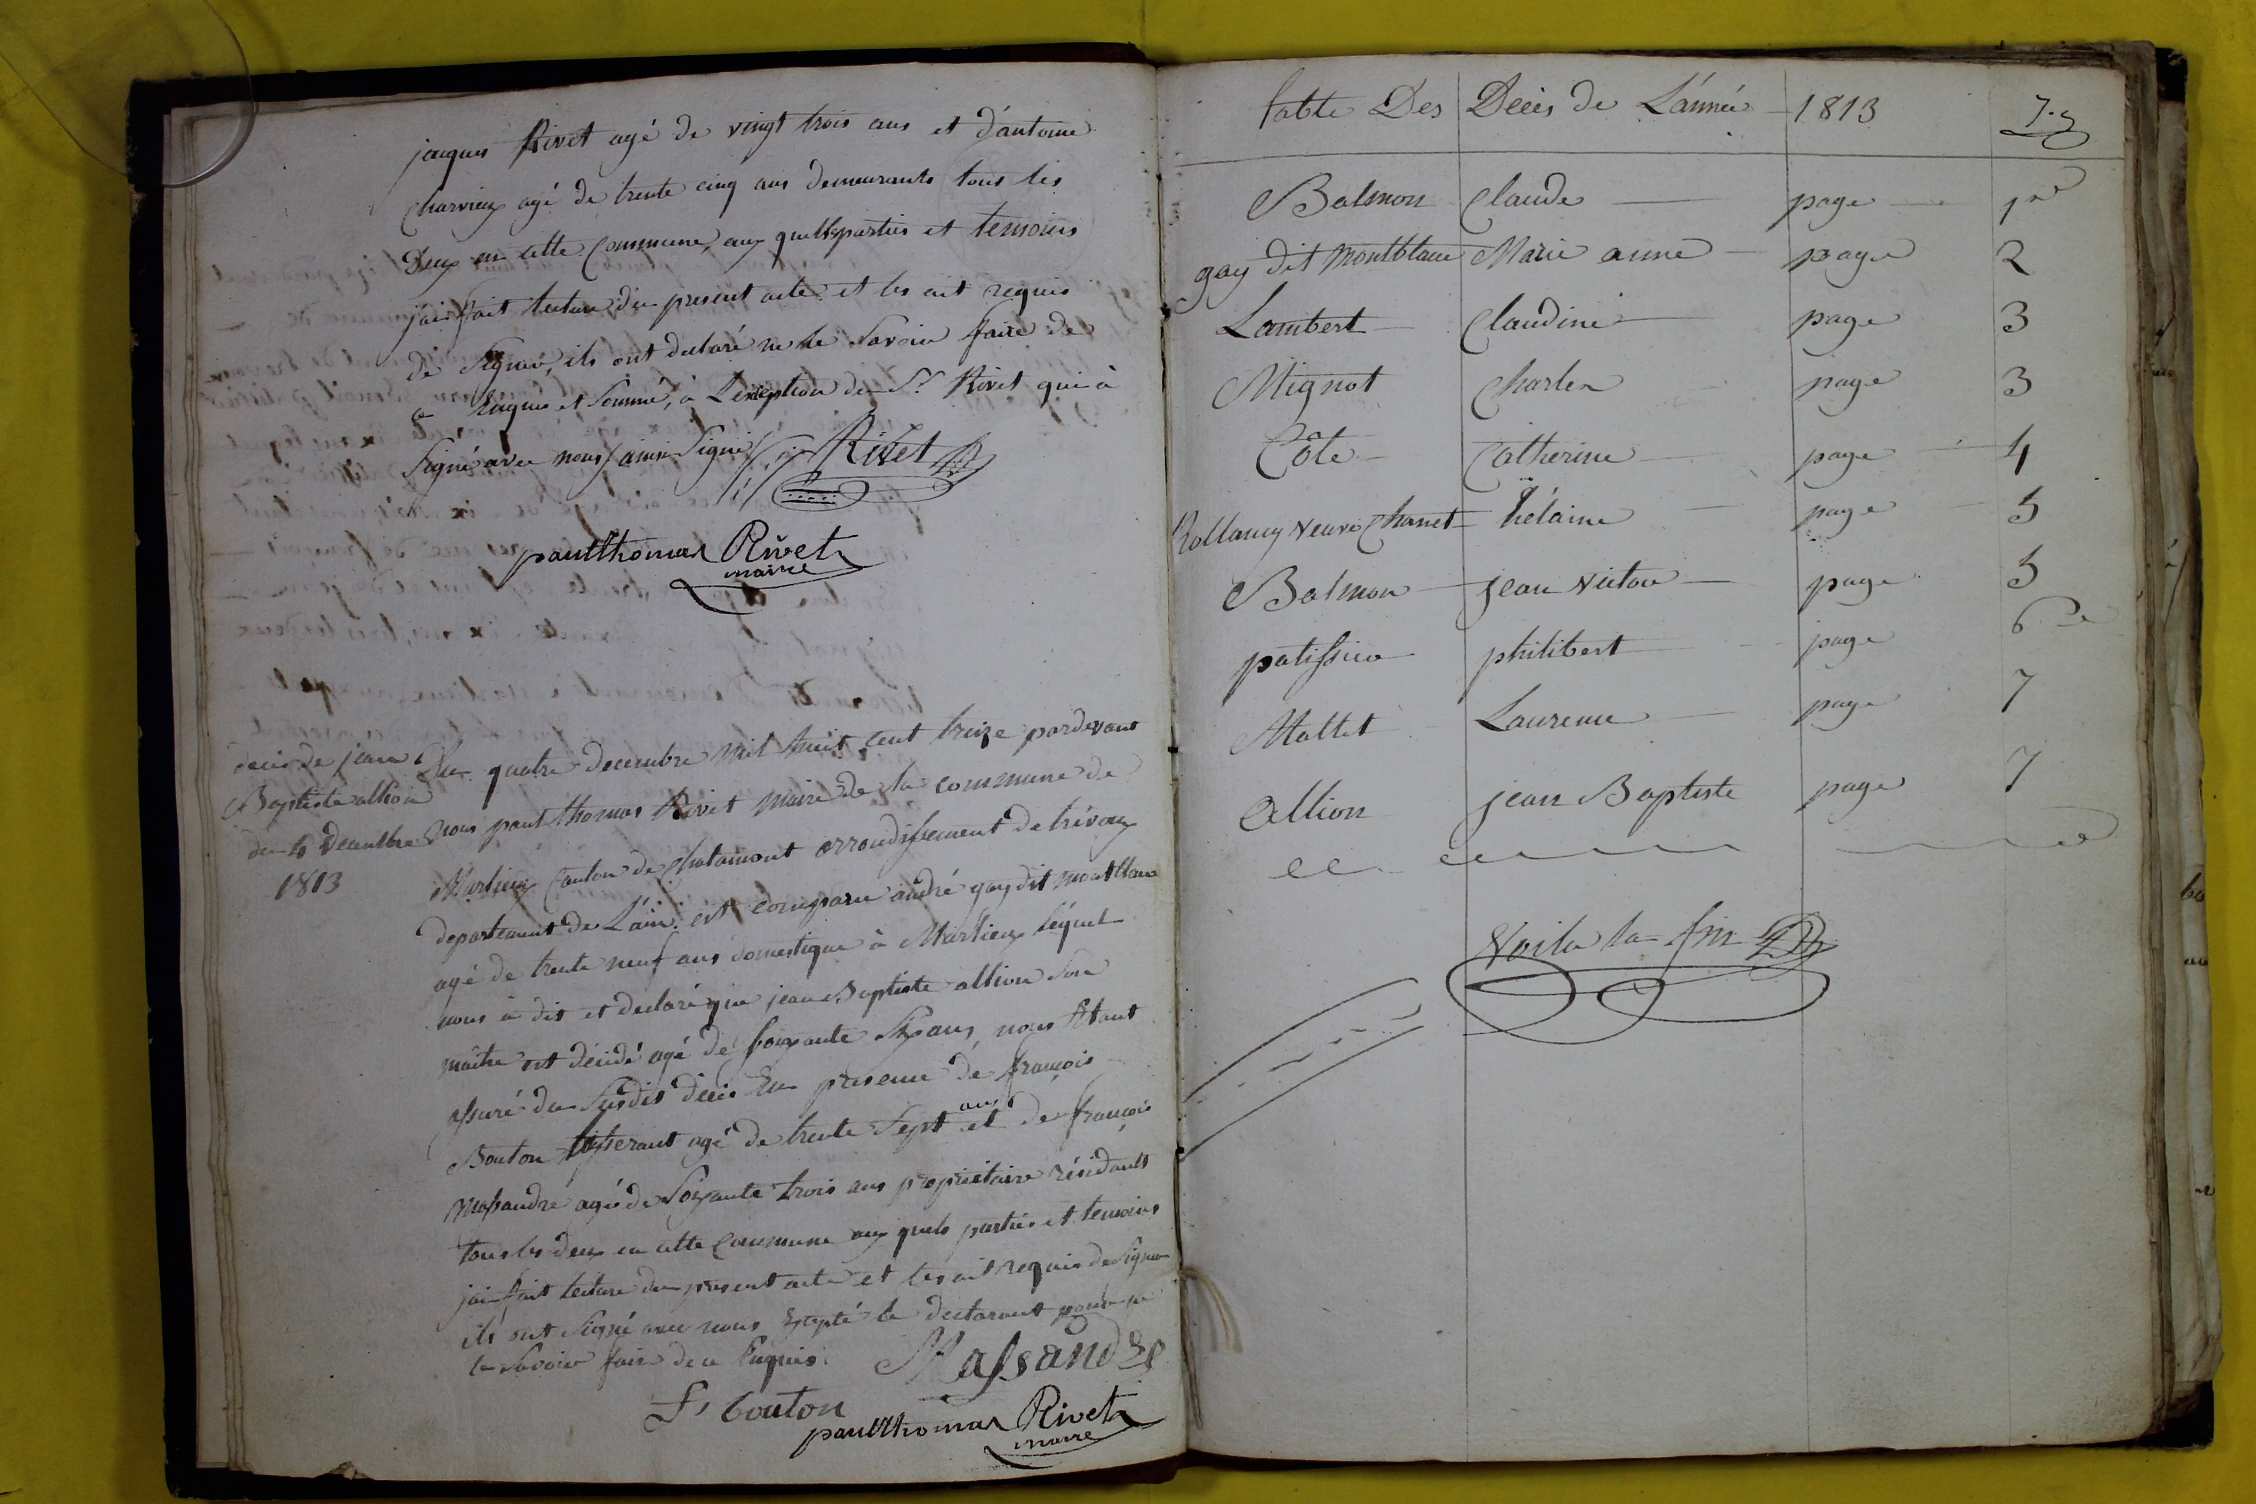 jacques Rivet agé de vingt trois ans et d'antoine
Charvieux agé de trente cinq ans demeurants tous les
Deux en cette Commune, aux quelles parties et temoins
j'ai fait lecture du present acte et les ait requis
de Signer, ils ont declaré ne le Savoir faire de
ce Enquis et Sommé, à L'exception du Sr. Rivet qui à
Signé avec nous ainsi Signé Rivet
paul thomas Rivet
maire
décés de jean
Baptiste allion
du 4 Decembre
1813
Du quatre decembre mil huit cent treize pardevant
nous paul thomas Rivet maire de la commune de
Marlieux Canton de Chalamont arrondissement de trévoux
departement de L'ain. est comparu andré gay dit montblanc
agé de trente neuf ans domestique à Marlieux lequel
nous à dit et declaré que jean Baptiste allion Son
maître est décédé agé de soixante Six ans, nous Etant
assuré du Susdit décés En presence de françois
Bouton tisserant agé de trente Sept ans et de françois
Massandre agé de Soixante trois ans proprietaire résidants
tous les deux en cette Commune aux quels parties et temoins
j'ai fait lecture du present acte et les ait requis de Signer
ils ont Signé avec nous Excepté le declarant pour ne
le Savoir faire de ce Enquis. Massandre
fs bouton
paul thomas Rivet
maire
table Des Décès de L'année 1813
Balmon Claude page 1re
gay dit Montblanc Marie anne page 2
Lambert Claudine page 3
Mignot Charles page 3
Côte Catherine page 4
veuve Chanet hélaine page 5
Balmon jean victor page 5
patissier philibert page 6
Mallet Laurence page 7
Allion jean Baptiste page 7
Voila la fin